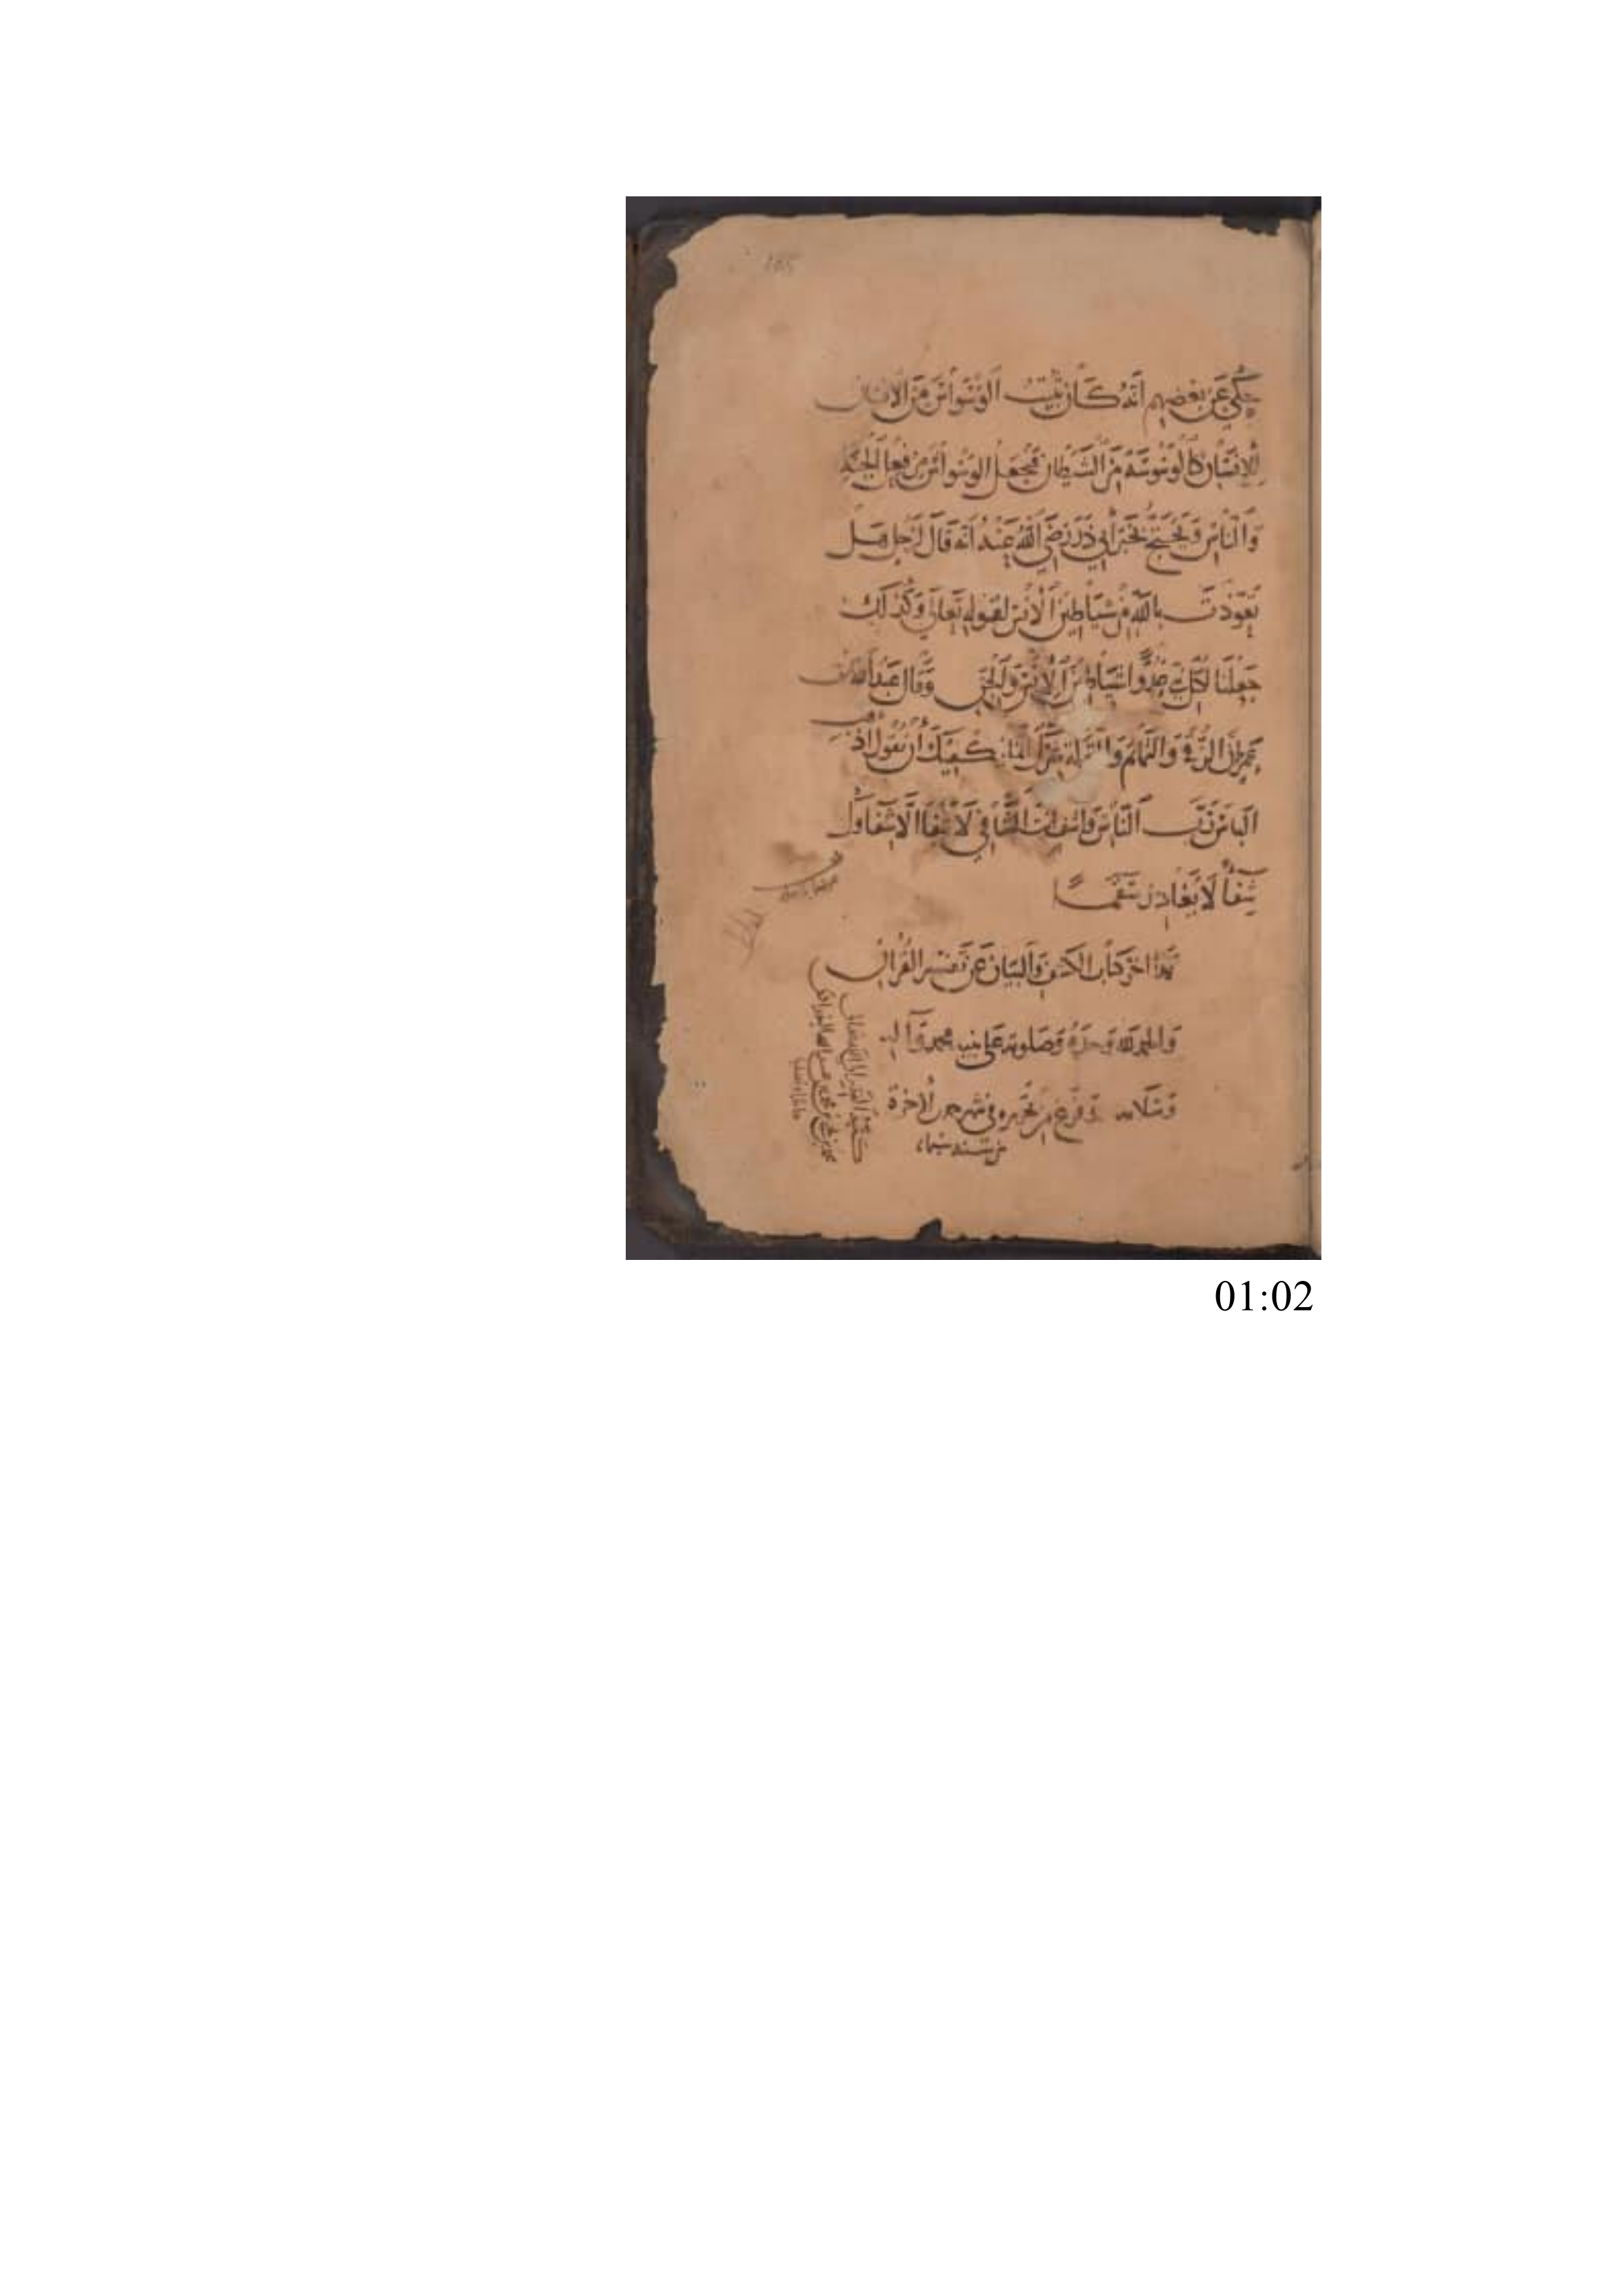 حكي عن بعضهم أنه كان يثبت الوسواس من الانسان
للانسان كالوسوسة من الشيطان فجعل الوسواس من فعل الجنة
والناس ويحتج بخبر أبي ذر رضي الله عنه أنه قال لرجل هل
تعوذت بالله من شياطين الانس لقوله تعالى وكذلك
جعلنا لكل نبي عدوا شياطين الانس والجن وقال عبد الله
الرقى والتمائم أن تقول اذهب
الباس رب الناس واشف أنت الشافي لا شفا الا شفاوك
شفا لا يغادر سقما
هذا اخر كتاب الكشف والبيان عن تفسير القران
والحمد لله وحده وصلوته على نبيه محمد وآله
وسلامه فرغ من في شهر الاخرة
من سنة
01:02